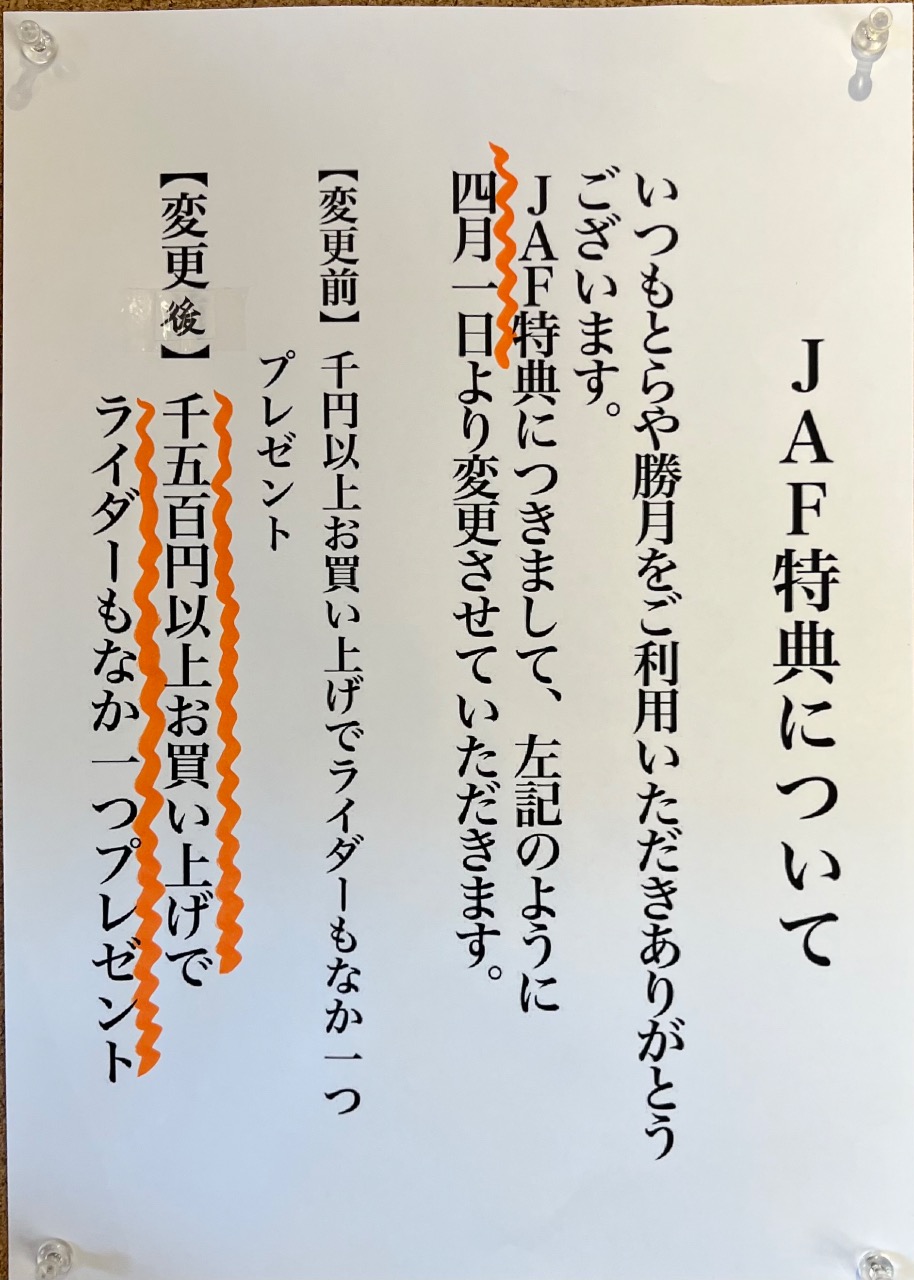 JAF特典について
いつもとらや勝月をご利用いただきありがとう
ございます。
JAF特典につきまして、左記のように
四月一日より変更させていただきます。
【変更前】千円以上お買い上げでライダーもなか一つ
プレゼント
【変更後】千五百円以上お買い上げで
ライダーもなか一つプレゼント